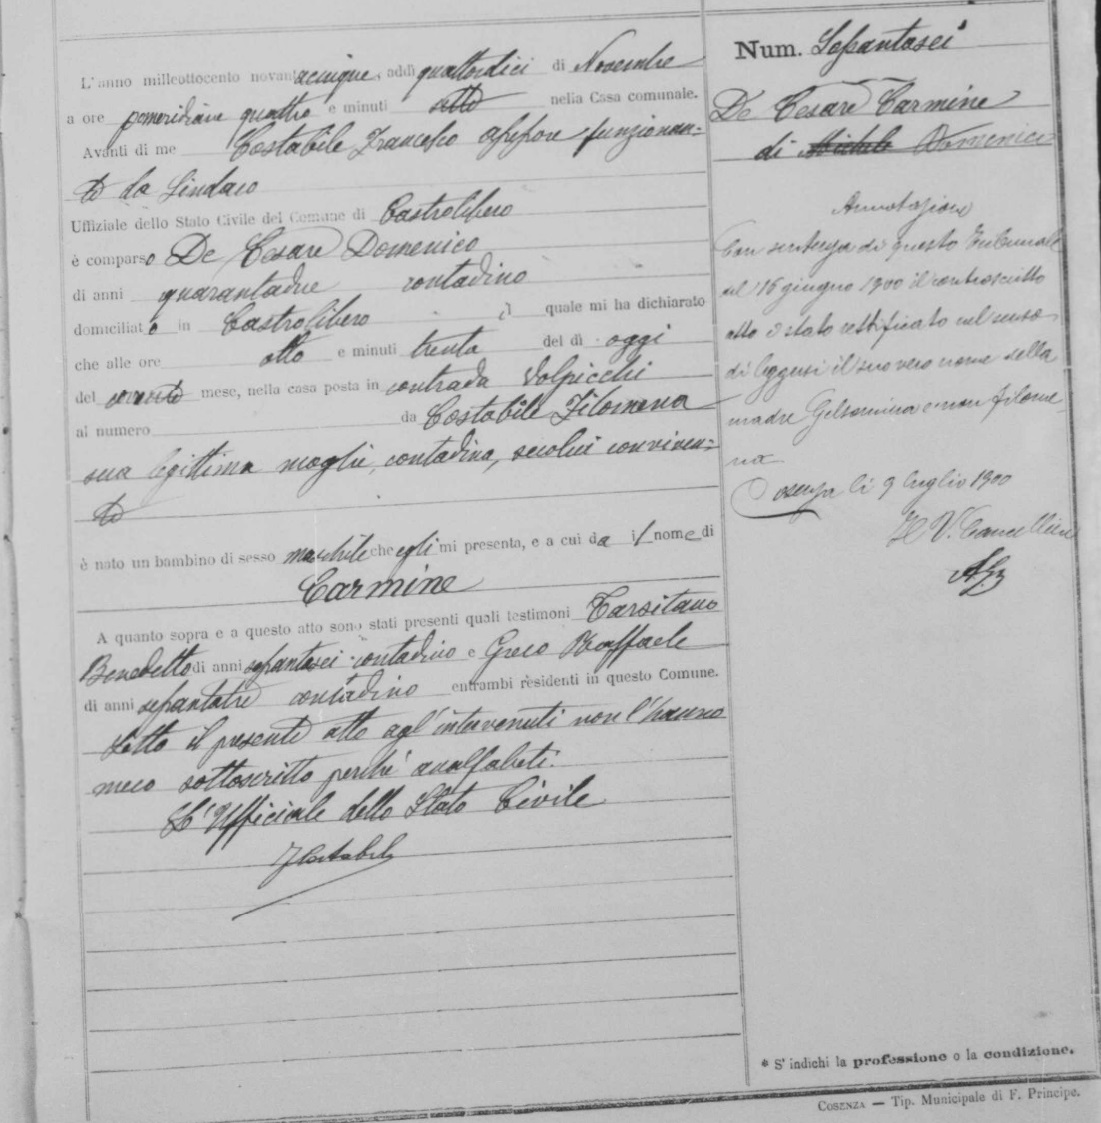 L'anno milleottocento novantacinque, addì quattordici di Novembre
a ore pomeridiane quattro e minuti sette nella Casa comunale.
Avanti di me Costabile Francesco assessore funzionan-
te da Sindaco
Uffiziale dello Stato Civile del Comune di Castrolibero
è comparso De Cesare Domenico
di anni quarantadue contadino
domiciliato in Castrolibero il quale mi ha dichiarato
che alle ore otto e minuti trenta del dì oggi
del corrente mese, nella casa posta in contrada Volpicchi
al numero da Costabile Filomena
sua legittima moglie, contadina, secolui conviven-
te
è nato un bambino di sesso maschile che egli mi presenta, e a cui da il nome di
Carmine
A quanto sopra e a questo atto sono stati presenti quali testimoni Tarsitano
Benedetto di anni sessantasei contadino e Greco Raffaele
di anni sessantatre contadino entrambi residenti in questo Comune.
Letto il presente atto agl'intervenuti non l'hanno
meco sottoscritto perché analfabeti.
L'Ufficiale dello Stato Civile
FCostabile
Num. Sessantasei
De Cesare Carmine
di Michele Domenico
Annotazione
Con sentenza di questo Tribunale
del 16 giugno 1900 il controscritto
atto è stato rettificato nel senso
di leggersi il suo vero nome della
madre Gelsomina e non filome-
na
Cosenza li 9 luglio 1900
Il V. Cancelliere
* S' indichi la professione o la condizione.
COSENZA — Tip. Municipale di F. Principe.